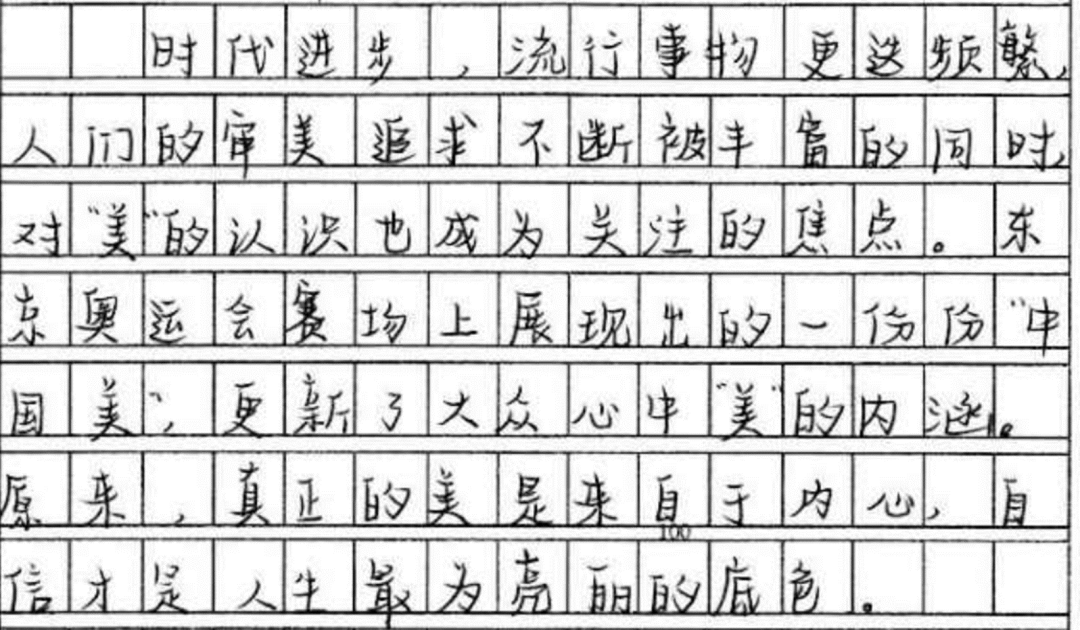 时代进步，流行事物更迭频繁，
人们的审美追求不断被丰富的同时，
对“美”的认识也成为关注的焦点。东
京奥运会赛场上展现出的一份份“中
国美”，更新了大众心中“美”的内涵。
原来，真正的美是来自于内心，自
100
信才是人生最为亮丽的底色。